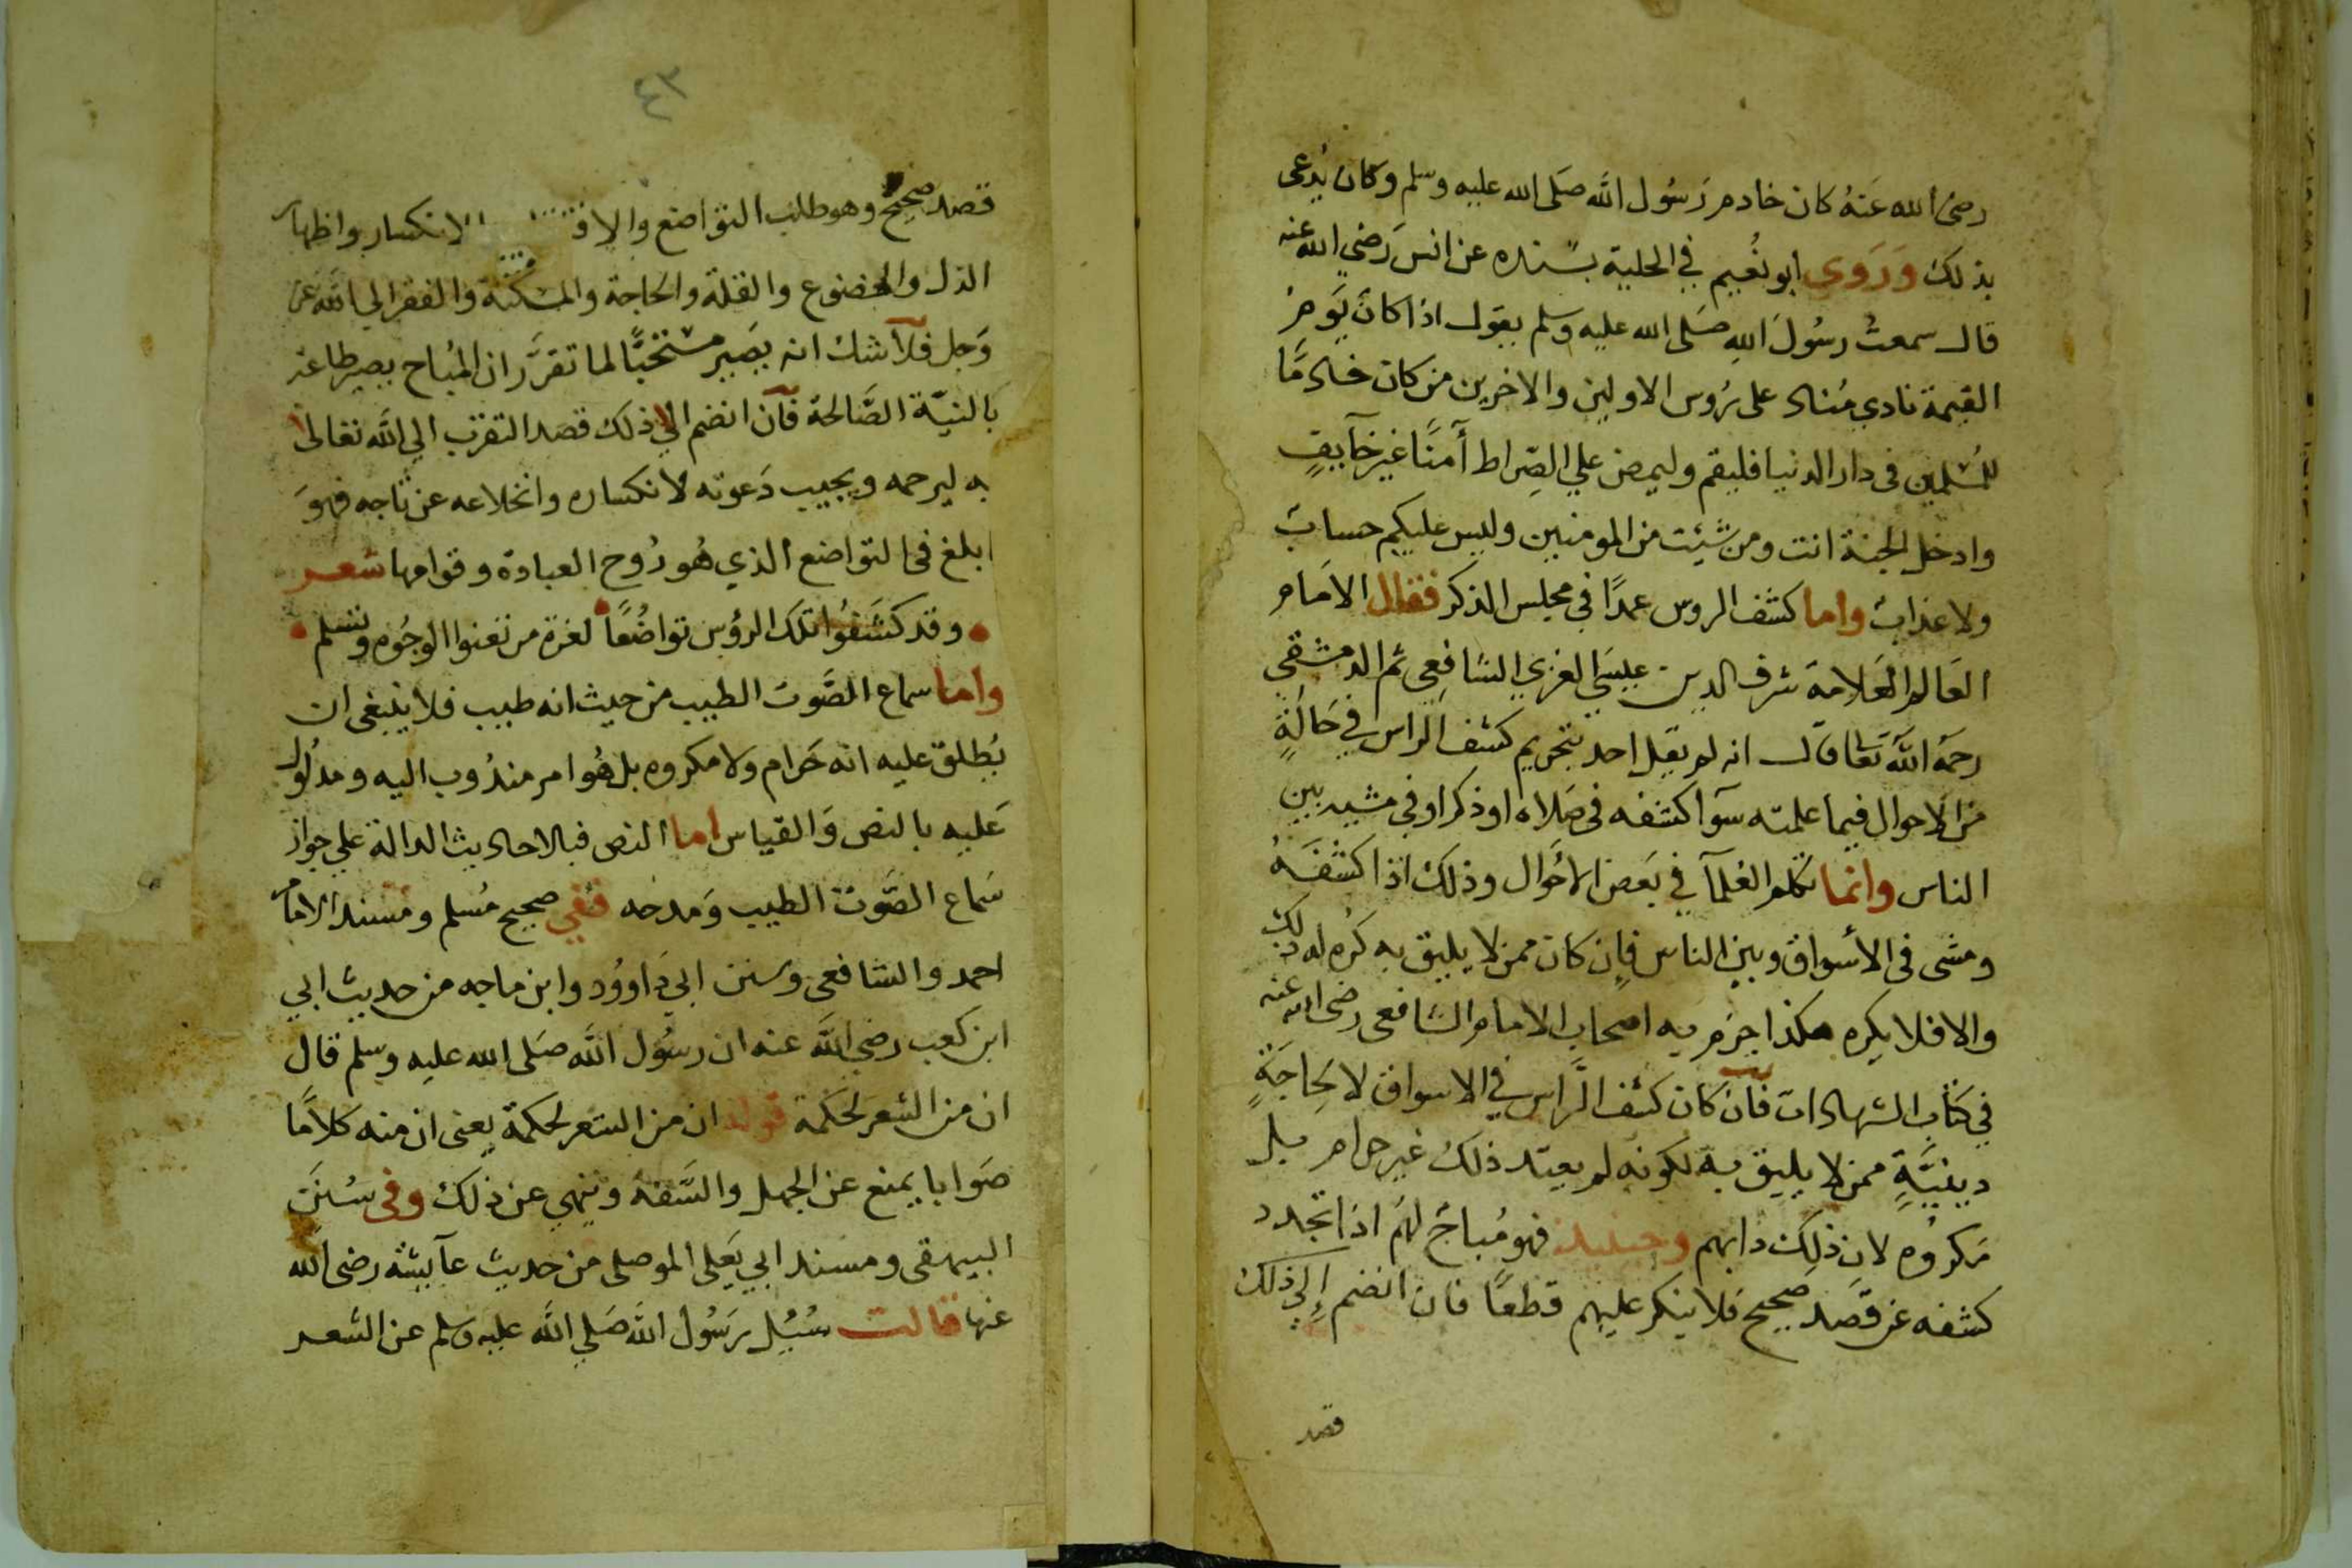 رضى الله عَنهُ كان خادم رَسُول الله صَلى الله عليه وسلم وكان يُدعى
بذلك وَرَوي ابو نُعيم في الحلية بسنده عن انس رَضي الله عنه
قال سمعتُ رسُولَ الله صَلى الله عليه وسلم يقول اذا كان يَومُ
القيمة نادي مُناد على رُوس الاولين والاخرين من كان خادمًا
للمُسْلمين فى دار الدنيا فليقم وليمض علي الصِراط آمنًا غير خآيفٍ
وادخل الجنة انت ومن شيئت من المومنين وليس عليكم حساب
ولا عذاب واما كشف الروس عمدًا في مجلس الذكر فقال الامام
العَالم العَلامة شرف الدين عيسَي الغزي الشافِعِى ثم الدمشقي
رحمَهُ اللهُ تعَا قال انه لم يقل احد بتحريم كشف الراس في حَالَةٍ
من الاحوال فيما علمته سوآ كشفه فى صَلاه او ذكر او فى مشيه بين
الناس وانما تكلم العُلمآ في بعَض الاحَوال وذلك اذا كشفَهُ
ومشى فى الأسواق وبين الناس فإن كان ممن لا يليق به كُره له ذلك
والا فلا يكره هكذا جزَم به اصحاب الامام الشافعى رضى الله عنه
في كتاب الشهادات فان كان كشف الرَّاس في الاسواق لا لحِاجَةٍ
دينيَّةٍ ممن لا يليق به لكونه لم يعتد ذلك غير حرام بل
مَكروُه لان ذلِك دابهم وحينيذ فهو مُباحٌ لهَم اذا تجدد
كشفه عن قَصَد صَحِيح فلا ينكر عليهم قطعًا فان انضم إلي ذلك
قصد
٤٣
قصد صَحِيحٌ وهو طلب التوَاضع والا الانكسار واظهار
الذل والخضوع والقلة والحاجة والمسكنة والفقر الي الله عَز
وَجل فلآشك انه يصَير مستحبًّا لما تقرَّر ان المُباح يصير طاعَة
بالنيّة الصَّالحة فان انضم الي ذلك قصد التقرب الي الله تعَالى
به ليرحمه ويجيب دَعوته لانكساره وانخلاعه عن تاجه فهوَ
ابلغ فى التواضع الذي هُو رُوح العبادة وقوامها شعر
وقد كشَفوُا تلك الرؤس تواضُعًا لعزة من تعنوا الوجُوه وتسلم
واما سماع الصَّوت الطيب من حيث انه طيب فلا ينبغى ان
يُطلق عليه انه حَرام ولا مكروه بل هُو امر مندُوب اليه ومدلُول
عَليه بالنص وَالقياس اما النص فبالاحاديث الدالة علي جواز
سَماع الصَّوت الطيب وَمدحه ففي صحيح مُسلم ومُسند الامام
احمد والشافعى وسنن ابي دَاووُد وابن ماجه من حديث ابي
ابن كعب رضي الله عنه ان رسُول الله صَلى الله عليه وسلم قال
ان من الشعر لحَكمة قوله ان من الشعر لحكمة يعنى ان منه كلامًا
صَوابا يمنع عن الجهل والسَّفه وينهي عن ذلك وفى سُننَ
البيهقى ومسند ابي يَعلى الموصلى من حديث عآيشه رضى الله
عنها قالت سُيُل رسُول الله صَلي الله عليه وسلم عن الشعر